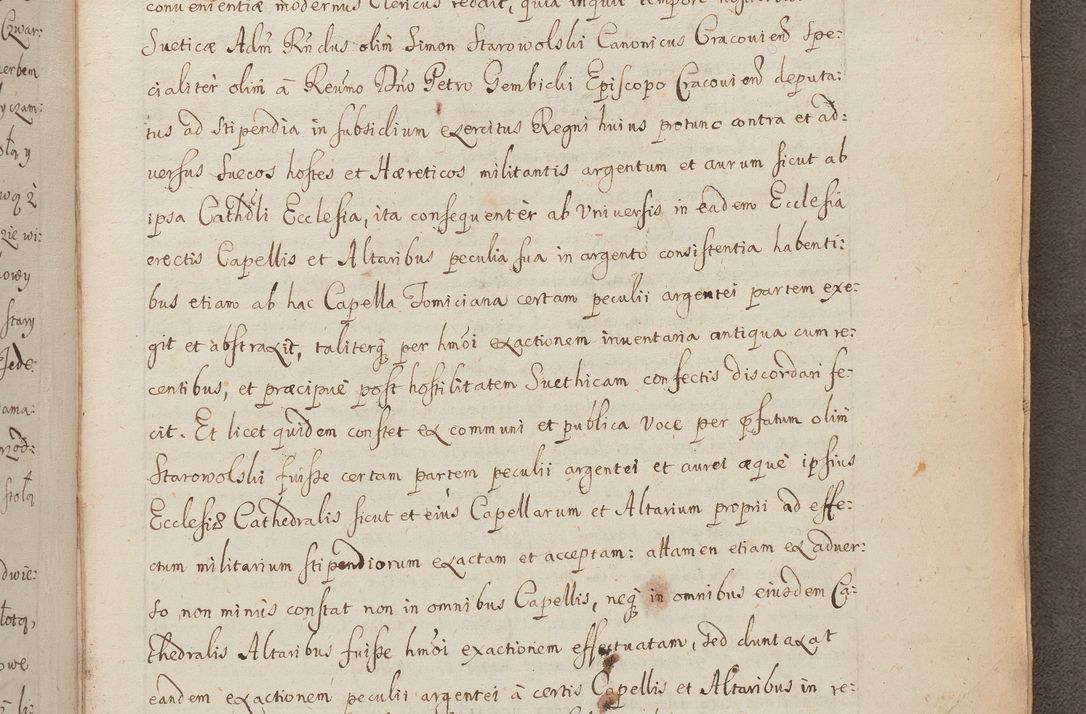 convenientiæ modernus Clericus reddit, quia inquit tempore
Sueticæ Adm̃ Rñdus olim Simon Starowolski Canonicus Cracovieñ Spe:
cialitèr olim à Reum̃o Dño Petro Gembicki Episcopo Cracovieñ deputa:
tus ad stipendia in subsidium exercitus Regni huius protunc contra et ad:
versus Suecos hostes et Hæreticos militantis argentum et aurum sicut ab
ipsa Cathdli Ecclesia, ita consequentèr ab Universis in eadem Ecclesia
erectis Capellis et Altaribus peculia sua in argento consistentia habenti:
bus etiam ab hac Capella Tomiciana certam peculii argentei partem exe:
git et abstraxit, taliterq̃ per hm̃oi exactionem inventaria antiqua cum re:
centibus, et præcipuè post hostilitatem Suethicam confectis discordari fe:
cit. Et licet quidem constet ex communi et publica voce per p̃fatum olim
Starowolski fuisse certam partem peculii argentei et aurei æquè ipsius
Ecclesiæ Cathedralis sicut et eiùs Capellarum et Altarium proprii ad effe:
ctum militarium stipendiorum exactam et acceptam: attamen etiam ex adver:
so non minùs constat non in omnibus Capellis, neq̃ in omnibus eiusdem Ca:
thedralis Altaribus fuisse hm̃oi exactionem effectuatam, sed duntaxat
eandem exactionem peculii argentei à certis Capellis et Altaribus in re:
Czwar:
erbem
yczam:
wq z
zie wi:
kowy
stary
Jede:
ama:
stolq
dwie:
owe